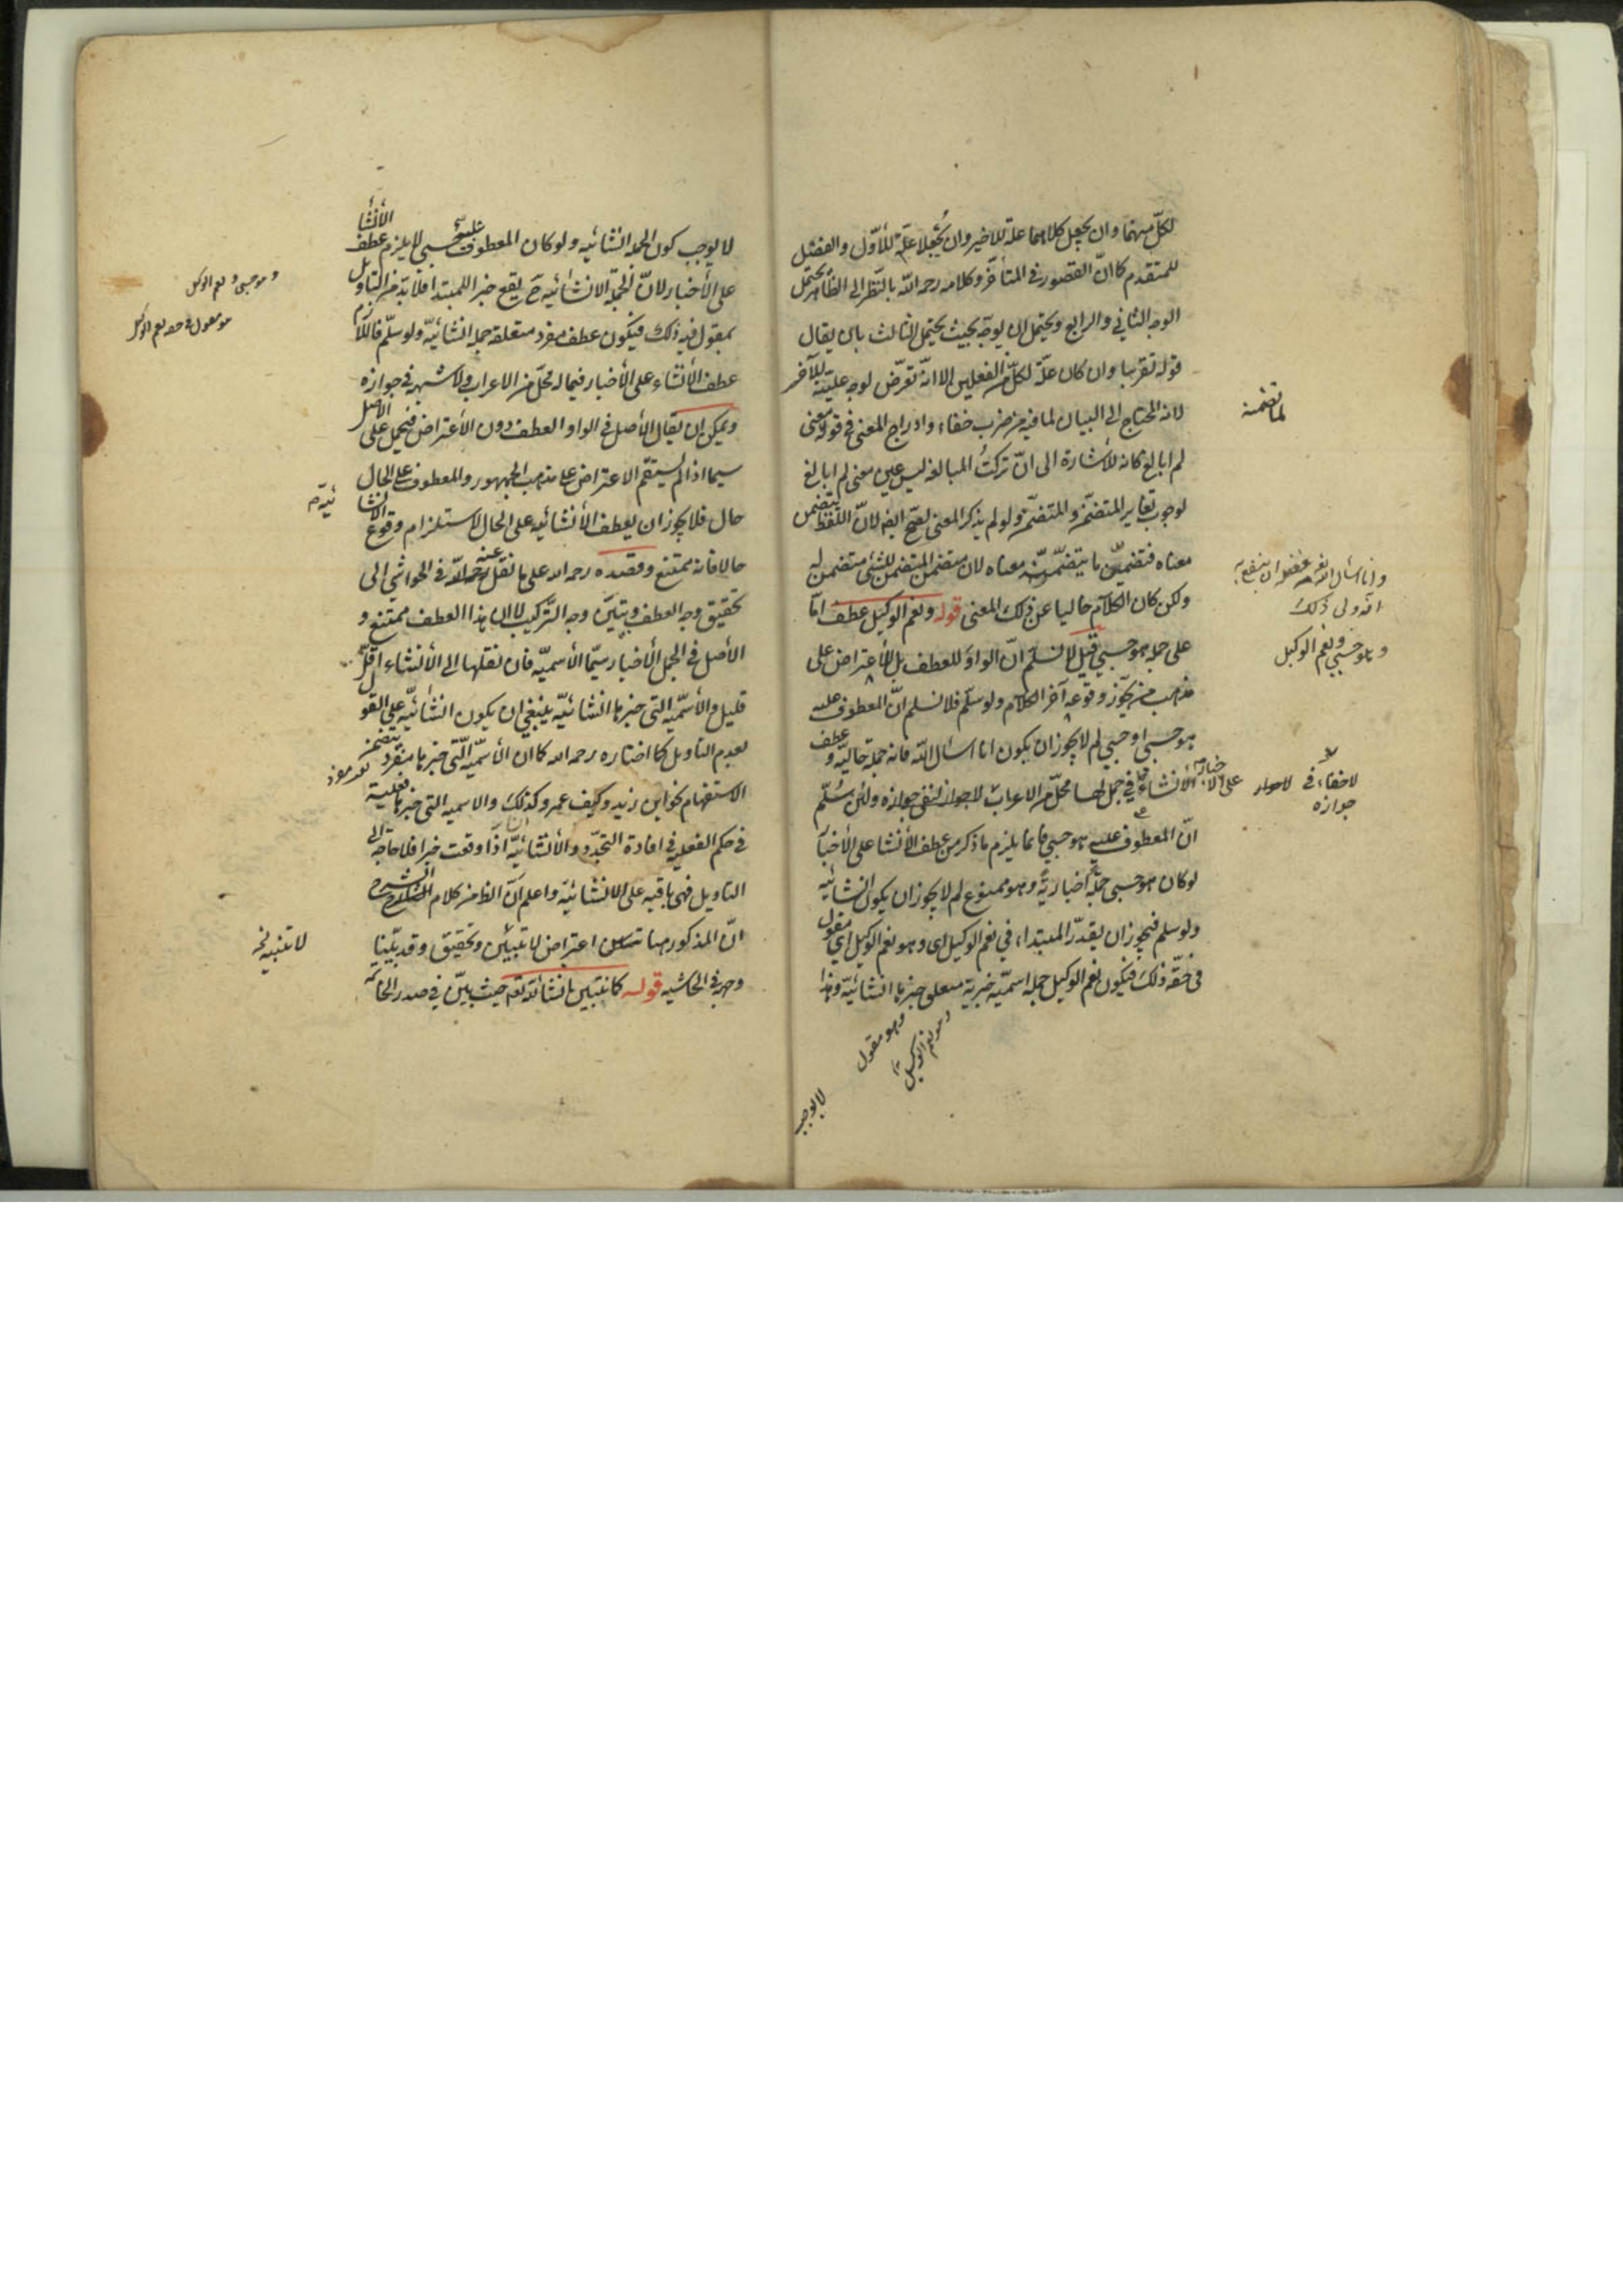 لكلّ منهما وان يجعل كلاهما علة للاخير وان يُجْعلا علّة للأوّل والفضل
للمتقدم كما انّ القصور في المتأخّر وكلامه رحمه اللّه بالنّظر الى الظّاهر يحتمل
الوجه الثاني والرابع ويحتمل ان يوجّه بحيث يحتمل الثالث بان يقال
قوله تقريبا وان كان علّة لكلّ من الفعلين الا انّه تعرّض لوجه عليّته للآخر
لانه المحتاج الى البيان لما فيه من ضرب خفاء وادراج المعنى في قوله معنى
لم ابالغ كانه للأشارة الى انّ تركتُ المبالغة ليس عين معنى لم ابالغ
لوجوب تغاير المتضمِّن والمتضمَّن ولو لم يذكر المعنى لصحّ ايضا لانّ اللفظ يتضمن
معناه فتضمين ما يتضمّن معناه لان متضمن المتضمن للشئ متضمن له
ولكن كان الكلام خاليا عن ذلك المعنى قوله ونعم الوكيل عطف امّا
على جملة هو حسبي قيل لا نسلّم انّ الواو للعطف بل للأعتراض على
مذهب من يجوّز وقوعه آخر الكلام ولو سلّم فلا نسلم انّ المعطوف عليه
هو حسبي او حسبي لم لا يجوز ان يكون انا اسئال اللّه فانه جملة حاليّة وعطف
الأنشاء على الاخبار في جمل لها محلّ من الاعراب لا جواز لنفي جوازه ولئن سُلّم
انّ المعطوف عليه هو حسبي فانما يلزم ما ذكر من عطف الأنشا على الأخبار
لو كان هو حسبي جملة اخبارية وهو ممنوع لم لا يجوز ان يكون انشائيّة
ولو سلم فيجوز ان يقدّر المبتداء في نعم الوكيل اى وهو نعم الوكيل اي مقول
في حقّه ذلك فيكون نعم الوكيل جملة اسميّة خبرية متعلق خبرها انشائيّة وهذا
لما تضمنه
وانا اسئال اللّه
انّه ولي ذلك
وهو حسبي ونعم الوكيل
لا خفاء في
جوازه
وهو مقول
وهو نعم الوكيل
لا يوجب
لا يوجب كون الجملة انشائيه ولو كان المعطوف عليه حسبي لا يلزم عطف الأنشا
على الأخبار لانّ الجملة الانشائيه ح يقع خبرا للمبتدا فلا بدّ من التاويل
بمقول فيه ذلك فيكون عطف مفرد متعلقه جملة انشائيّة ولو سلّم فاللازم
عطف الأنشاء على الأخبار فيما له محلّ من الاعراب ولا شبهة في جوازه
ويمكن ان يقال الأصل في الواو العطف دون الأعتراض فيحمل على الاصل
سيما اذا لم يستقم الاعتراض على مذهب الجمهور والمعطوف على الحال
حال فلا يجوز ان يعطف الأنشائيه على الحال لاستلزام وقوع الانشا
حالا فانه ممتنع ومقصده رحمه الله على ما نقل عنه في الحواشي الى
تحقيق وجه العطف وتبيّن وجه التّركيب لا ان هذا العطف ممتنع و
الأصل في الجمل الأخبار سيّما الأسميّه فان نقلها الى الأنشاء اقلّ
قليل والأسميّه التى خبرها انشائيّة ينبغي ان يكون انشائيّة على القول
بعدم التاويل كما اختاره رحمه الله كما ان الأسميّه الّتي خبرها مفرد يتضمن
الاستفهام نحو اين زيد وكيف عمرو كذلك والاسميه التي خبرها فعلية
في حكم الفعليه في افادة التجدّد والأنشائيّة اذا وقعت خبرا فلا حاجة الى
التاويل فهى باقيه على الانشائيّة واعلم انّ الظ من كلام
انّ المذكور ههنا اعتراض لا تبيين وتحقيق وقد بيّنا
وجهه في الحاشيه قوله كما نتبين انشاء اللّه تع حيث بيّن في صدر الخاتمه
وهو حسبي ونعم الوكيل
هو مقول في حقه نعم الوكيل
ئية
لا تنبيه